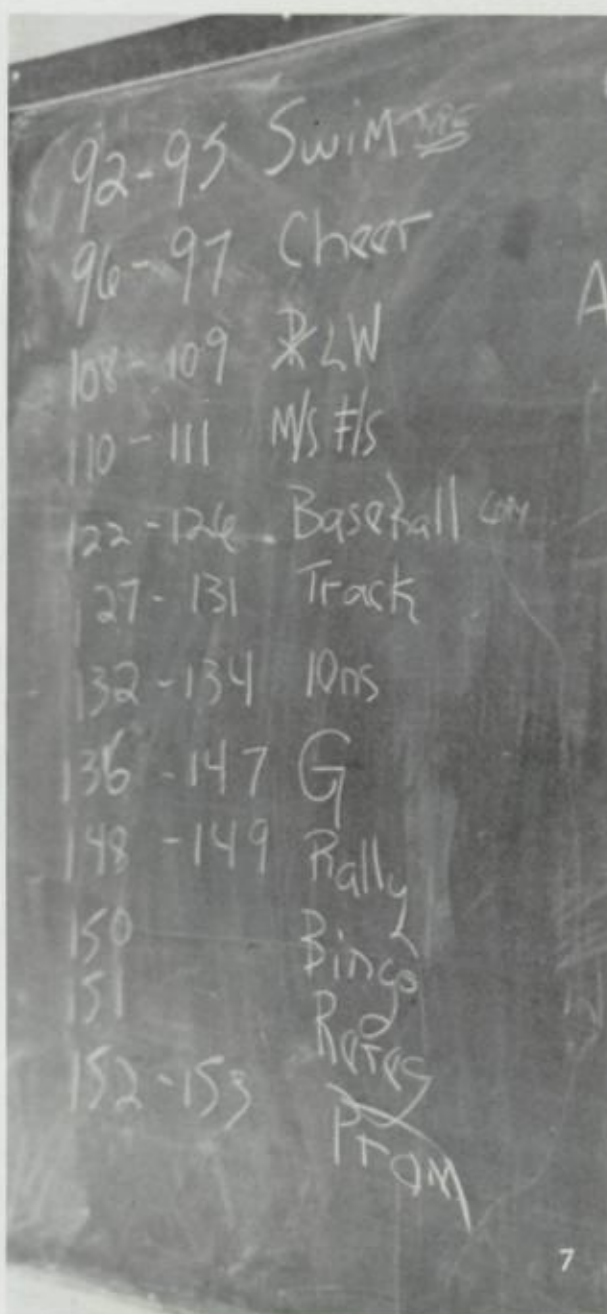 92-95 Swim TYPE
96-97 Cheer
108-109 LW
110-111 M/S F/S
122-126 Baseball
127-131 Track
132-134
136-147 G
148-149 Rally
150 Bingo
151 Refs
152-153 Prom
A
7